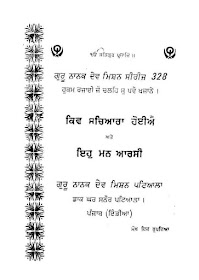 ੴ ਸਤਿਗੁਰ ਪ੍ਰਸਾਦਿ ॥
ਗੁਰੂ ਨਾਨਕ ਦੇਵ ਮਿਸ਼ਨ ਸੀਰੀਜ਼ 328
ਹੁਕਮ ਰਜਾਈ ਜੋ ਚਲਹਿ ਸੁ ਪਵੈ ਖਜਾਨੈ ।
ਕਿਵ ਸਚਿਆਰਾ ਹੋਈਐ
ਅਤੇ
ਇਹੁ ਮਨ ਆਰਸੀ
ਗੁਰੂ ਨਾਨਕ ਦੇਵ ਮਿਸ਼ਨ ਪਟਿਆਲਾ
ਡਾਕ ਘਰ ਸਨੌਰ ਪਟਿਆਲਾ ।
ਪੰਜਾਬ (ਇੰਡੀਆ)
ਇਕ ਰੁਪਈਆ